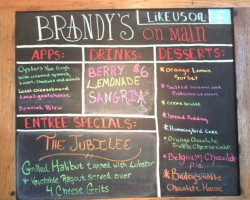 BRANDY'S
LIKE US ON f
on MAIN
APPS:
Oysters Van Eagh
with creamed spinach,
bacon,
Local
Spanish
DRINKS:
BERRY $6
LEMONADE
SANGRIA
DESSERTS:
* Orange Lemon
Sorbet
* Salted Caramel and
* Creme brulee
* Bread Pudding
* Hummingbird Cake
* Orange Chocolate
Truffle Cheesecake
* Belgium Chocolate
Pie
*
Chocolate Mousse
ENTREE SPECIALS:
THE JUBILEE
Grilled Halibut topped with Lobster
& Vegetable Ragout served over
4 Cheese Grits